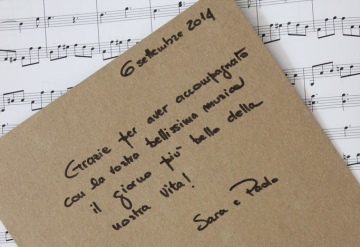 6 settembre 2014
Grazie per aver accompagnato
con la vostra bellissima musica
il giorno più bello della
nostra vita!
Sara e Paolo